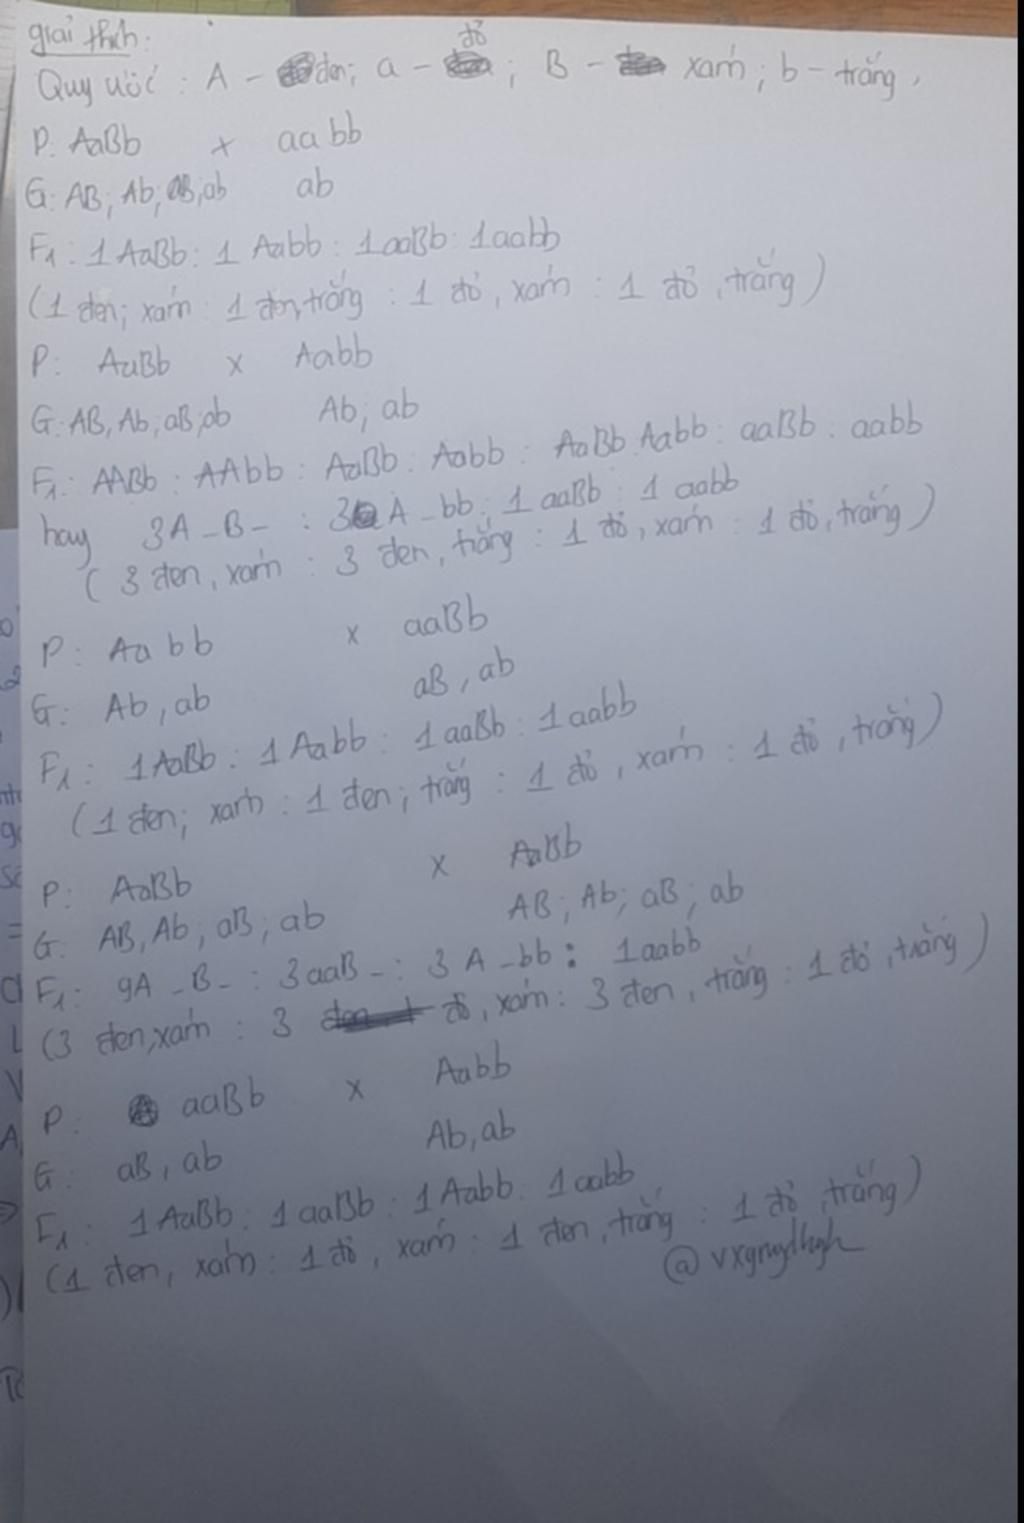 giải thích:
Quy ước: A - đen; a - đỏ; B - xám; b - trắng,
P: AaBb x aabb
G: AB; Ab; aB; ab ab
F1: 1 AaBb: 1 Aabb: 1aaBb: 1aabb
(1 đen; xám: 1 đen, trắng: 1 đỏ, xám: 1 đỏ, trắng)
P: AaBb x Aabb
G: AB, Ab, aB, ab Ab; ab
F1: AABb: AAbb: AaBb: Aabb: AaBb: Aabb: aaBb: aabb
hay 3A-B-: 3 A-bb: 1 aaBb: 1 aabb
(3 đen, xám: 3 đen, trắng: 1 đỏ, xám: 1 đỏ, trắng)
P: Aabb x aaBb
G: Ab, ab aB, ab
F1: 1AaBb: 1 Aabb: 1 aaBb: 1aabb
(1 đen; xám: 1 đen; trắng: 1 đỏ, xám: 1 đỏ, trắng)
P: AaBb x AaBb
G: AB, Ab; aB; ab AB; Ab; aB; ab
F1: 9A-B-: 3aaB-: 3 A-bb: 1aabb
(3 đen, xám: 3 đỏ, xám: 3 đen, trắng: 1 đỏ, trắng)
P: aaBb x Aabb
G: aB, ab Ab, ab
F1: 1AaBb: 1 aaBb: 1 Aabb: 1 aabb
(1 đen, xám: 1 đỏ, xám: 1 đen, trắng: 1 đỏ, trắng)